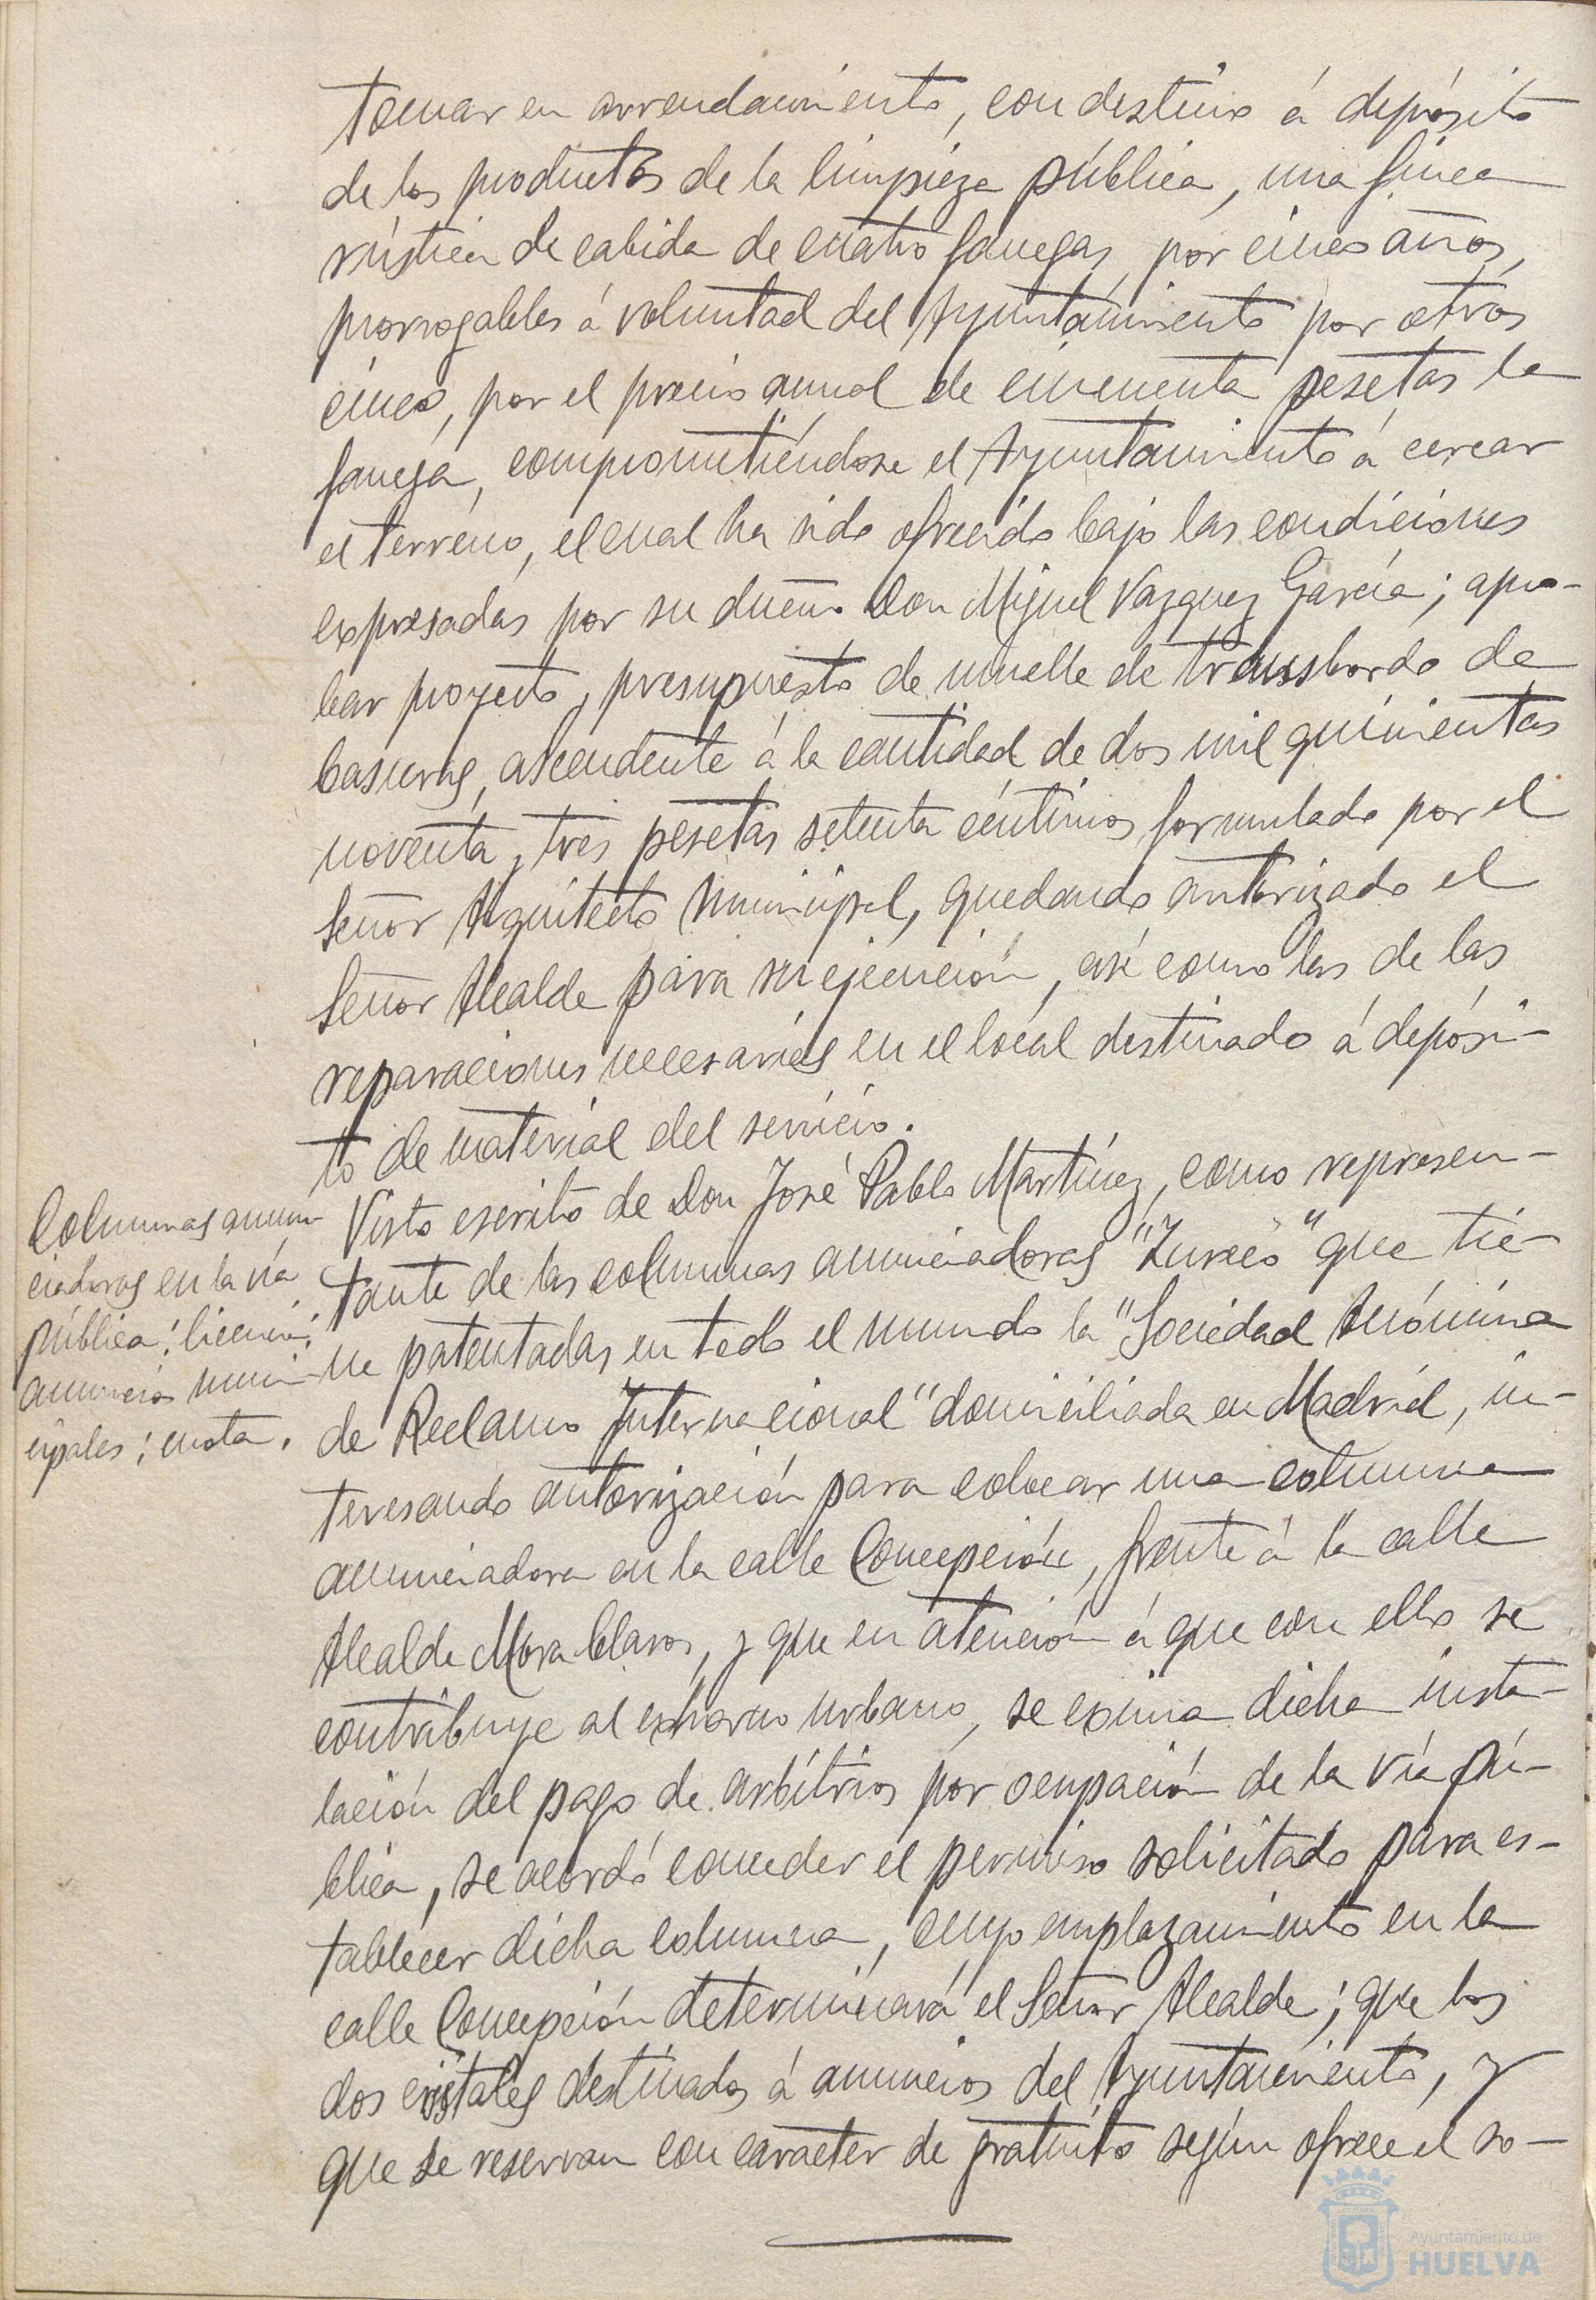 tomar en arrendamiento, con destino á depósito
de los productos de la limpieza pública, una finca
rústica de cabida de cuatro fanegas, por cinco años,
prorrogables á voluntad del Ayuntamiento por otros
cinco, por el precio anual de cincuenta pesetas la
fanega, comprometiéndose el Ayuntamiento á cercar
el terreno, el cual ha sido ofrecido bajo las condiciones
expresadas por su dueño Don Miguel Vazquez García; apro-
bar proyecto y presupuesto de muelle de transbordo de
basuras, ascendente á la cantidad de dos mil quinientas
noventa y tres pesetas setenta céntimos formulado por el
Señor Arquitecto Municipal, quedando autorizado el
Señor Alcalde para su ejecución, así como las de las
reparaciones necesarias en el local destinado á depósi-
to de material del servicio.
Columnas anun-
ciadoras en la vía
pública; licencia;
anuncios muni-
cipales; cuota.
Visto escrito de Don José Pablo Martínez, como represen-
tante de las columnas anunciadoras "Zurco" que tie-
ne patentadas en todo el mundo la "Sociedad Anónima
de Reclamo Internacional" domiciliada en Madrid, in-
teresando autorización para colocar una columna
anunciadora en la calle Concepción, frente á la calle
Alcalde Mora Claros, y que en atención á que con ello se
contribuye al exhorno urbano, se exima dicha insta-
lación del pago de arbítrios por ocupación de la vía pú-
blica, se acordó conceder el permiso solicitado para es-
tablecer dicha columna, cuyo emplazamiento en la
calle Concepción determinará el Señor Alcalde; que los
dos cristales destinados á anuncios del Ayuntamiento, y
que se reservan con caracter de gratuito según ofrece el so-
Ayuntamiento de
HUELVA